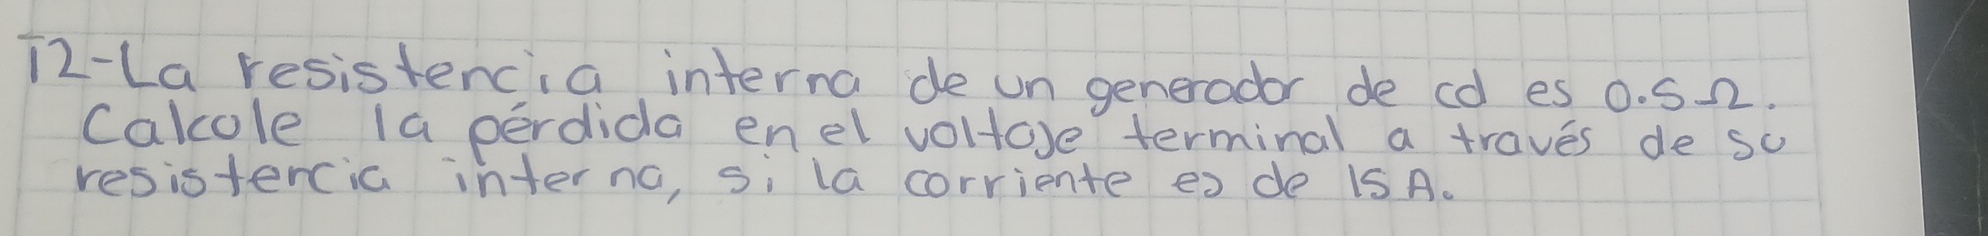 12-La resistencia interna de un generador de cd es 0.5Ω.
Calcule la pérdida en el voltaje terminal a través de su
resistencia interna, si la corriente es de 15 A.